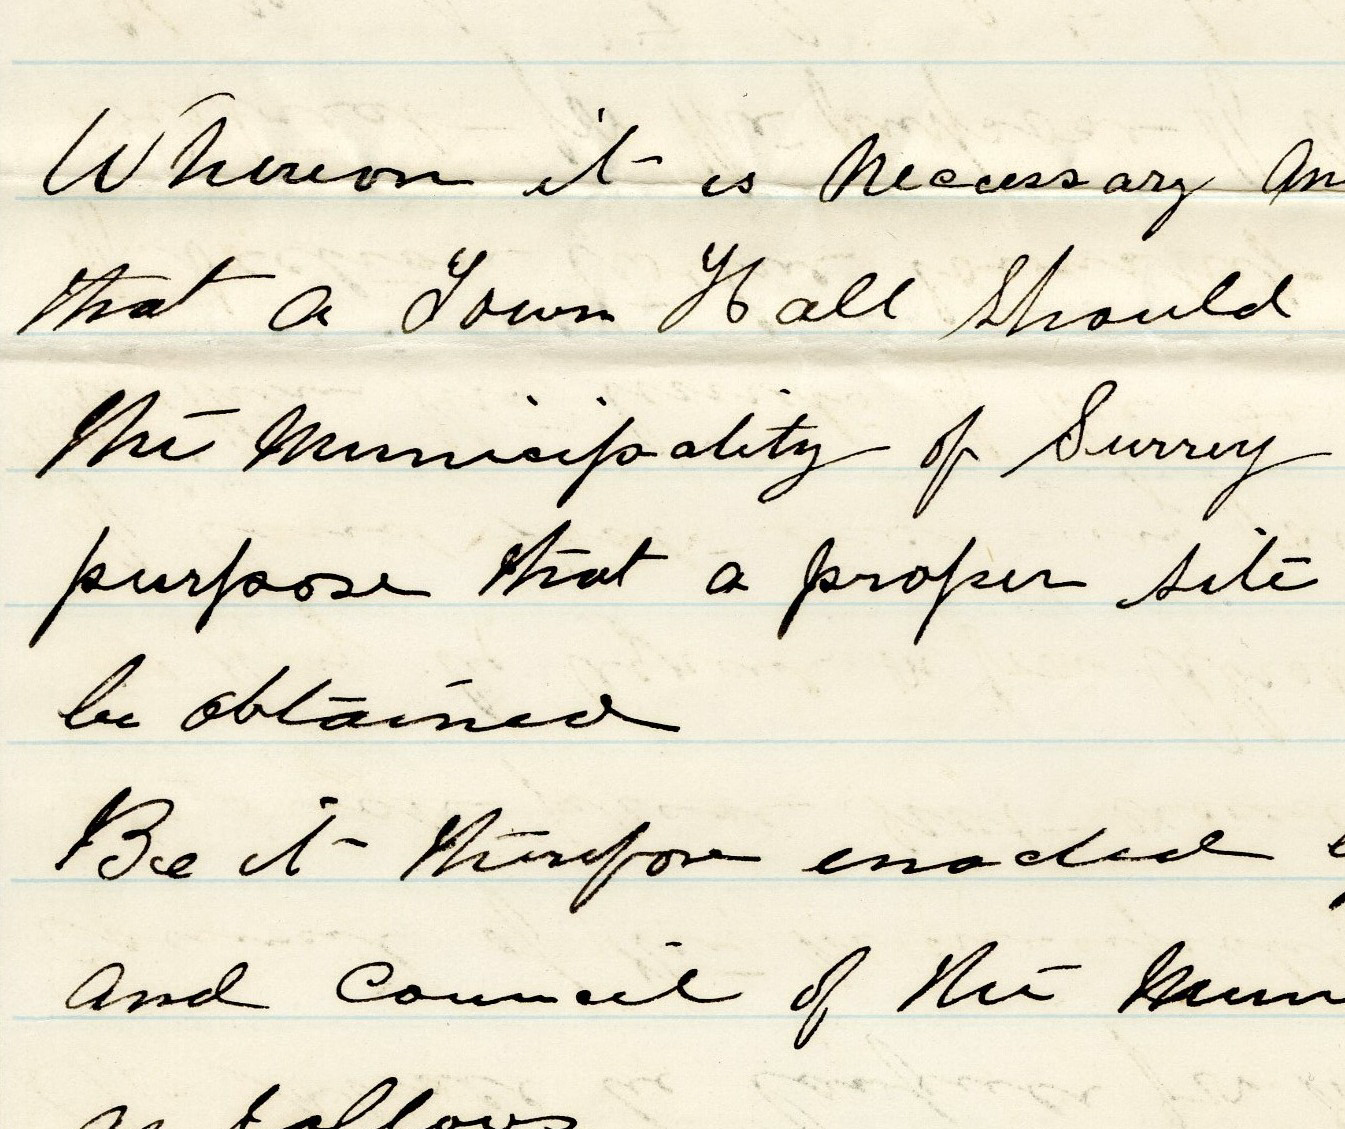 Whereon it is necessary an
that a Town Hall should
the Municipality of Surrey
purpose that a proper site
be obtained
Be it therefore enacted
and Council of the Mun
as follows